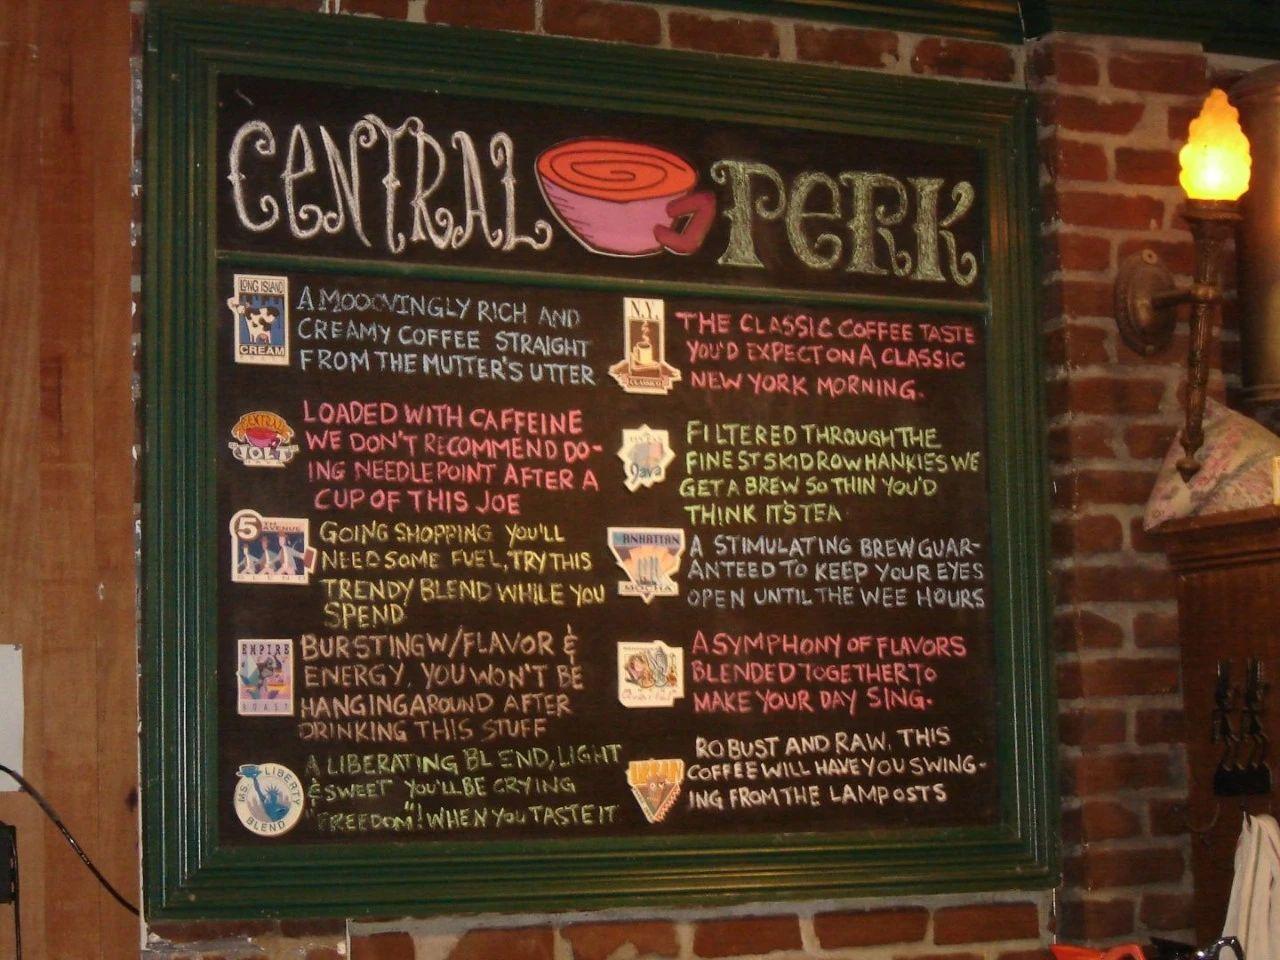 CENTRAL PERK
LONG ISLAND
CREAM
A MOOOVINGLY RICH AND
CREAMY COFFEE STRAIGHT
FROM THE MUTTER'S UTTER
CENTRAL
JOLT
JAVA
LOADED WITH CAFFEINE
WE DON'T RECOMMEND DO-
ING NEEDLEPOINT AFTER A
CUP OF THIS JOE
5TH AVENUE
BLEND
GOING SHOPPING YOU'LL
NEED SOME FUEL, TRY THIS
TRENDY BLEND WHILE YOU
SPEND
EMPIRE
ROAST
BURSTING W/FLAVOR &
ENERGY, YOU WON'T BE
HANGING AROUND AFTER
DRINKING THIS STUFF
MS LIBERTY
BLEND
A LIBERATING BLEND, LIGHT
& SWEET YOU'LL BE CRYING
"FREEDOM"! WHEN YOU TASTE IT
N.Y.
CLASSICO
THE CLASSIC COFFEE TASTE
YOU'D EXPECT ON A CLASSIC
NEW YORK MORNING.
Java
FILTERED THROUGH THE
FINEST SKIDROW HANKIES WE
GET A BREW SO THIN YOU'D
THINK IT'S TEA
MANHATTAN
MOCHA
A STIMULATING BREW GUAR-
ANTEED TO KEEP YOUR EYES
OPEN UNTIL THE WEE HOURS
A SYMPHONY OF FLAVORS
BLENDED TOGETHER TO
MAKE YOUR DAY SING.
ROBUST AND RAW, THIS
COFFEE WILL HAVE YOU SWING-
ING FROM THE LAMPOSTS